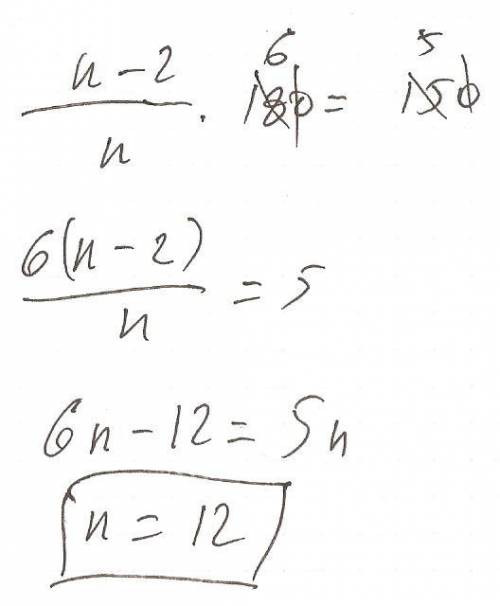 6 5
n - 2 / n · 180 = 150
6(n - 2) / n = 5
6n - 12 = 5n
n = 12